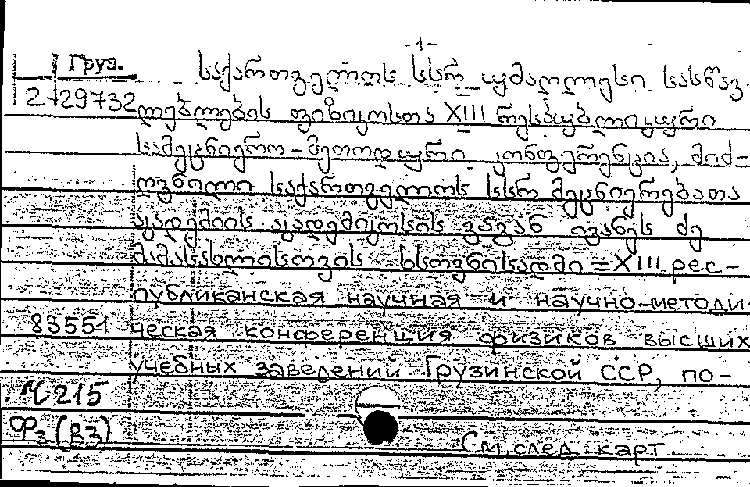 -1-
Груз.
საქართველოს სსრ უმაღლესი სასწავ-
2-29732 ლებლების ფიზიკოსთა XIII რესპუბლიკური
სამეცნიერო-მეთოდური კონფერენცია, მიძ-
ღვნილი საქართველოს სსრ მეცნიერებათა
აკადემიის აკადემიკოსის ვაგან ივანეს ძე
მამასახლისოვის ხსოვნისადმი = XIII рес-
публиканская научная и научно-методи
83551 ческая конференция физиков высших
учебных заведений Грузинской ССР, по-
М215
Ф3(В3)
См.след.карт